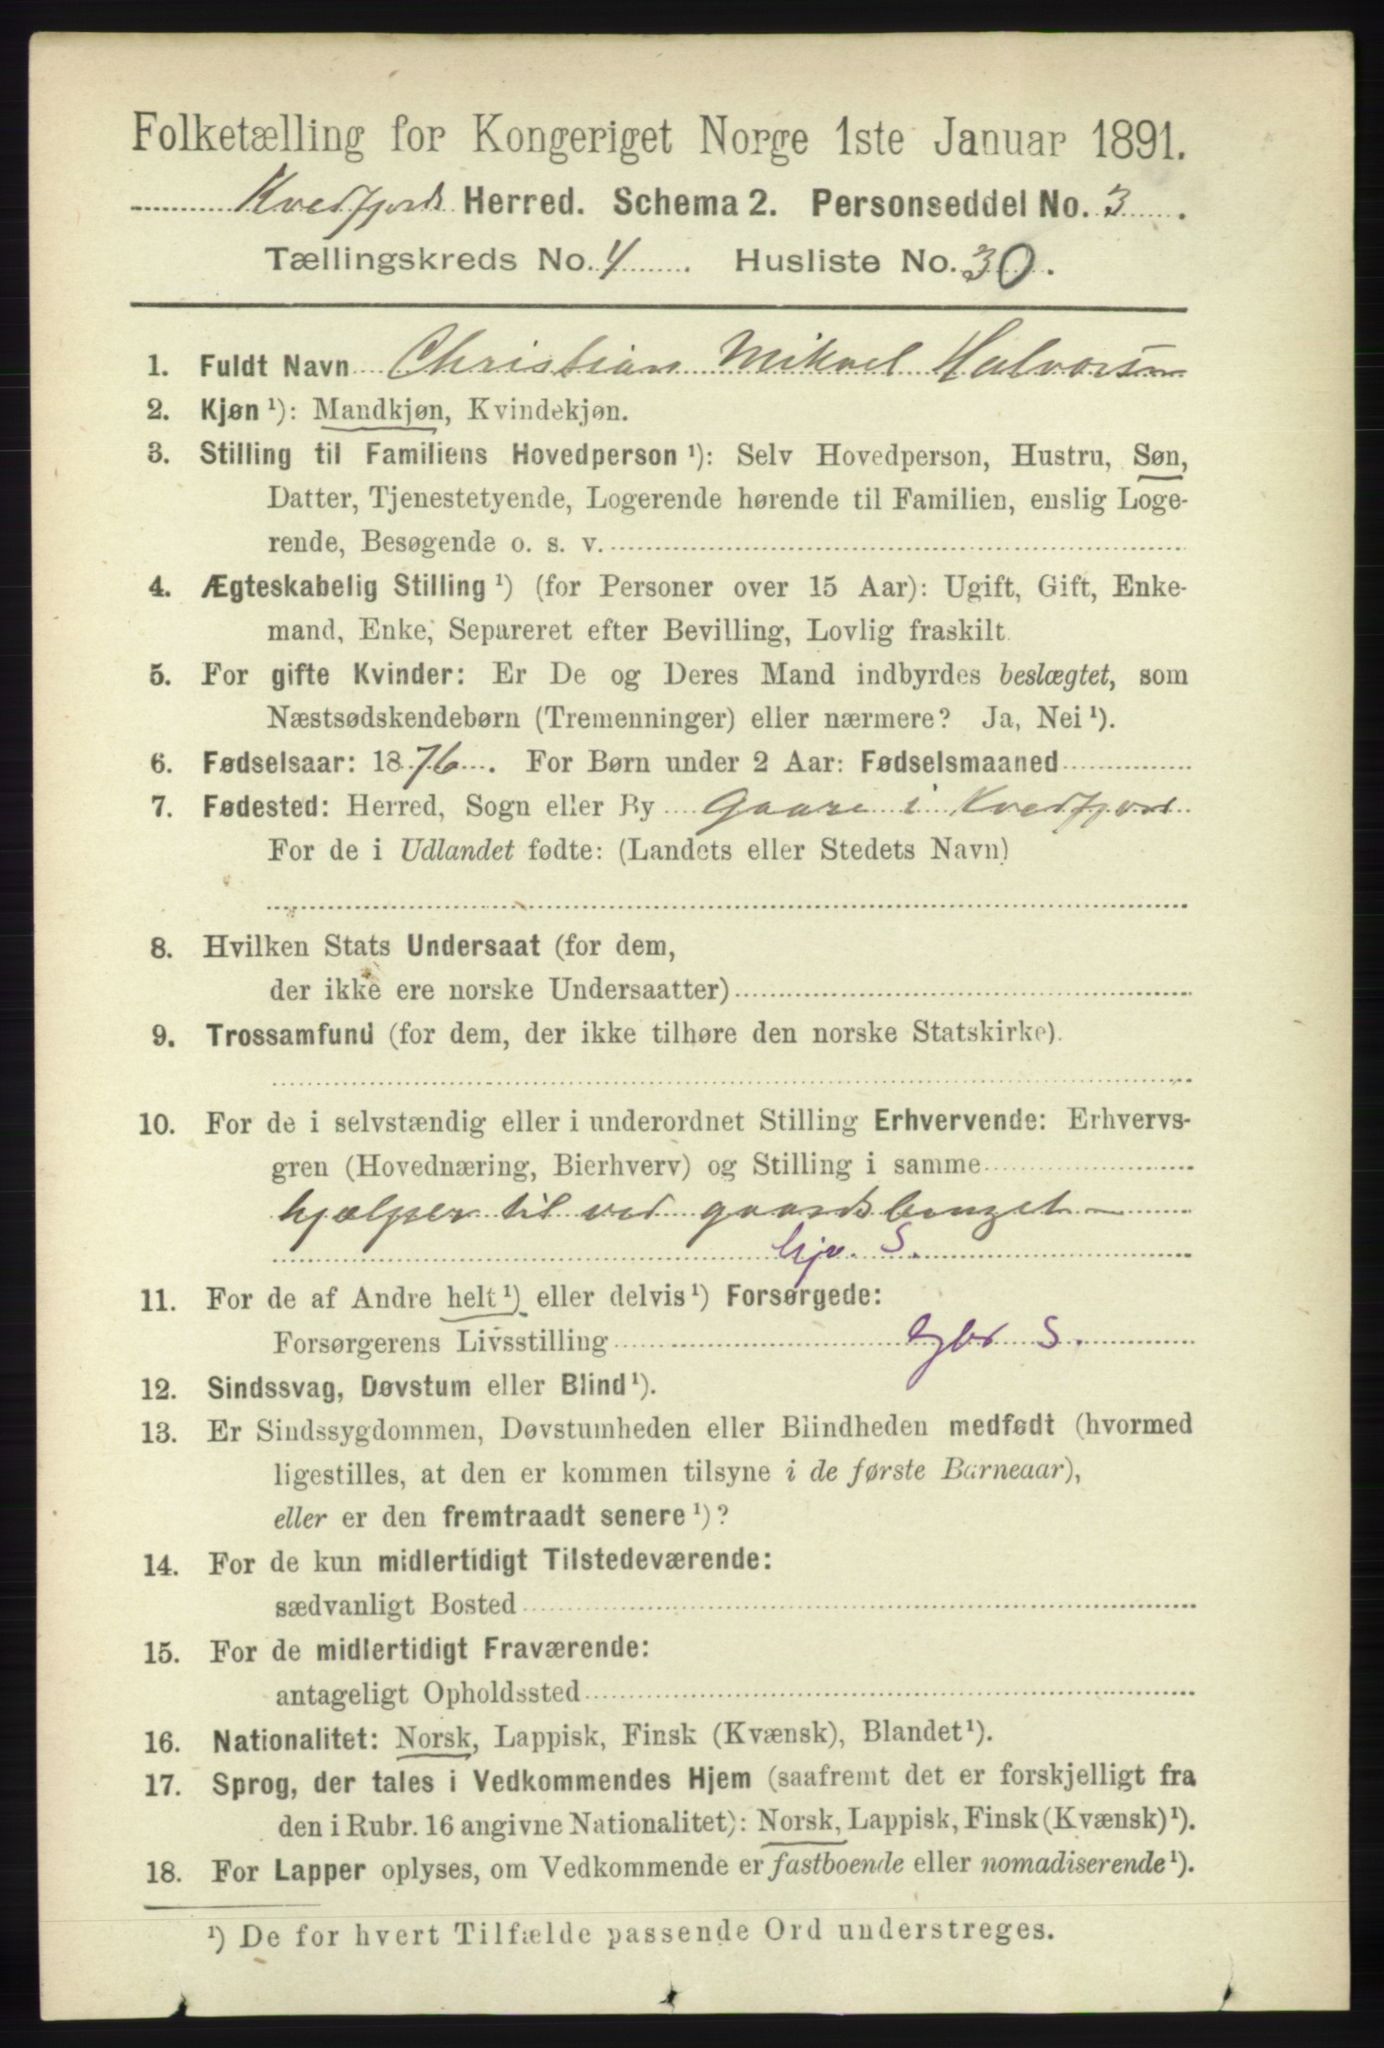 Folketælling for Kongeriget Norge 1ste Januar 1891.
Kvedfjords Herred. Schema 2. Personseddel No. 3.
Tællingskreds No. 4. Husliste No. 30.
1. Fuldt Navn Christian Mikael Halvorsen
2. Kjøn ¹): Mandkjøn, Kvindekjøn.
3. Stilling til Familiens Hovedperson ¹): Selv Hovedperson, Hustru, Søn,
Datter, Tjenestetyende, Logerende hørende til Familien, enslig Loge-
rende, Besøgende o. s. v.
4. Ægteskabelig Stilling ¹) (for Personer over 15 Aar): Ugift, Gift, Enke-
mand, Enke, Separeret efter Bevilling, Lovlig fraskilt.
5. For gifte Kvinder: Er De og Deres Mand indbyrdes beslægtet, som
Næstsødskendebørn (Tremenninger) eller nærmere? Ja, Nei ¹).
6. Fødselsaar: 1876. For Børn under 2 Aar: Fødselsmaaned
7. Fødested: Herred, Sogn eller By Gaare i Kvedfjord
For de i Udlandet fødte: (Landets eller Stedets Navn)
8. Hvilken Stats Undersaat (for dem,
der ikke ere norske Undersaatter)
9. Trossamfund (for dem, der ikke tilhøre den norske Statskirke).
10. For de i selvstændig eller i underordnet Stilling Erhvervende: Erhvervs-
gren (Hovednæring, Bierhverv) og Stilling i samme
hjælper til ved gaardsbruget
hjv. S.
11. For de af Andre helt ¹) eller delvis ¹) Forsørgede:
Forsørgerens Livsstilling gbr S.
12. Sindssvag, Døvstum eller Blind ¹).
13. Er Sindssygdommen, Døvstumheden eller Blindheden medfødt (hvormed
ligestilles, at den er kommen tilsyne i de første Barneaar),
eller er den fremtraadt senere ¹)?
14. For de kun midlertidigt Tilstedeværende:
sædvanligt Bosted
15. For de midlertidigt Fraværende:
antageligt Opholdssted
16. Nationalitet: Norsk, Lappisk, Finsk (Kvænsk), Blandet ¹).
17. Sprog, der tales i Vedkommendes Hjem (saafremt det er forskjelligt fra
den i Rubr. 16 angivne Nationalitet): Norsk, Lappisk, Finsk (Kvænsk) ¹).
18. For Lapper oplyses, om Vedkommende er fastboende eller nomadiserende ¹).
¹) De for hvert Tilfælde passende Ord understreges.